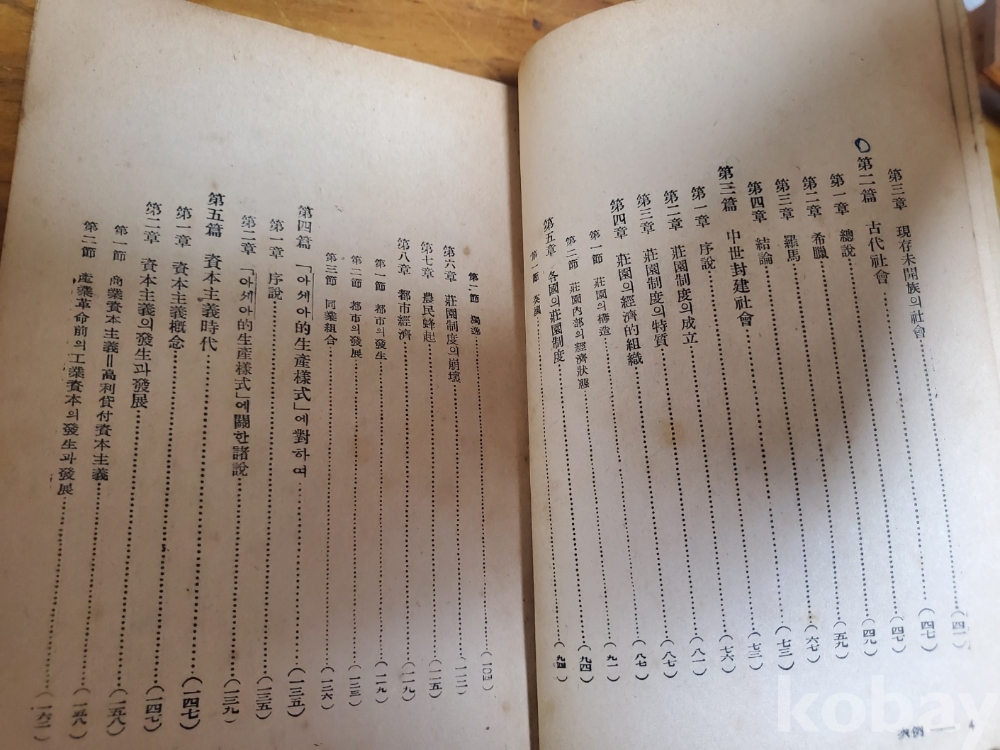 第三章 現存未開族의社會……(四一)
第二篇 古代社會……(四七)
第一章 總說……(四七)
第二章 希臘……(四九)
第三章 羅馬……(五九)
第四章 結論……(六七)
第三篇 中世封建社會……(七三)
第一章 序說……(七三)
第二章 莊園制度의成立……(七六)
第三章 莊園制度의特質……(八一)
第四章 莊園의經濟的組織……(八七)
第一節 莊園의構造……(八七)
第二節 莊園內部의經濟狀態……(九一)
第五章 各國의莊園制度……(九四)
第一節 英國……(九四)
次例 — 4
第二節 獨逸……(一〇四)
第六章 莊園制度의崩壞……(一一二)
第七章 農民蜂起……(一一五)
第八章 都市經濟……(一一九)
第一節 都市의發生……(一一九)
第二節 都市의發展……(一二三)
第三節 同業組合……(一二六)
第四篇 「아세아的生產樣式」에對하여……(一三五)
第一章 序說……(一三五)
第二章 「아세아的生產樣式」에關한諸說……(一三九)
第五篇 資本主義時代……(一四七)
第一章 資本主義概念……(一四七)
第二章 資本主義의發生과發展……(一五八)
第一節 商業資本主義=高利貸付資本主義……(一五八)
第二節 產業革命前의工業資本의發生과發展……(一六二)
kobay